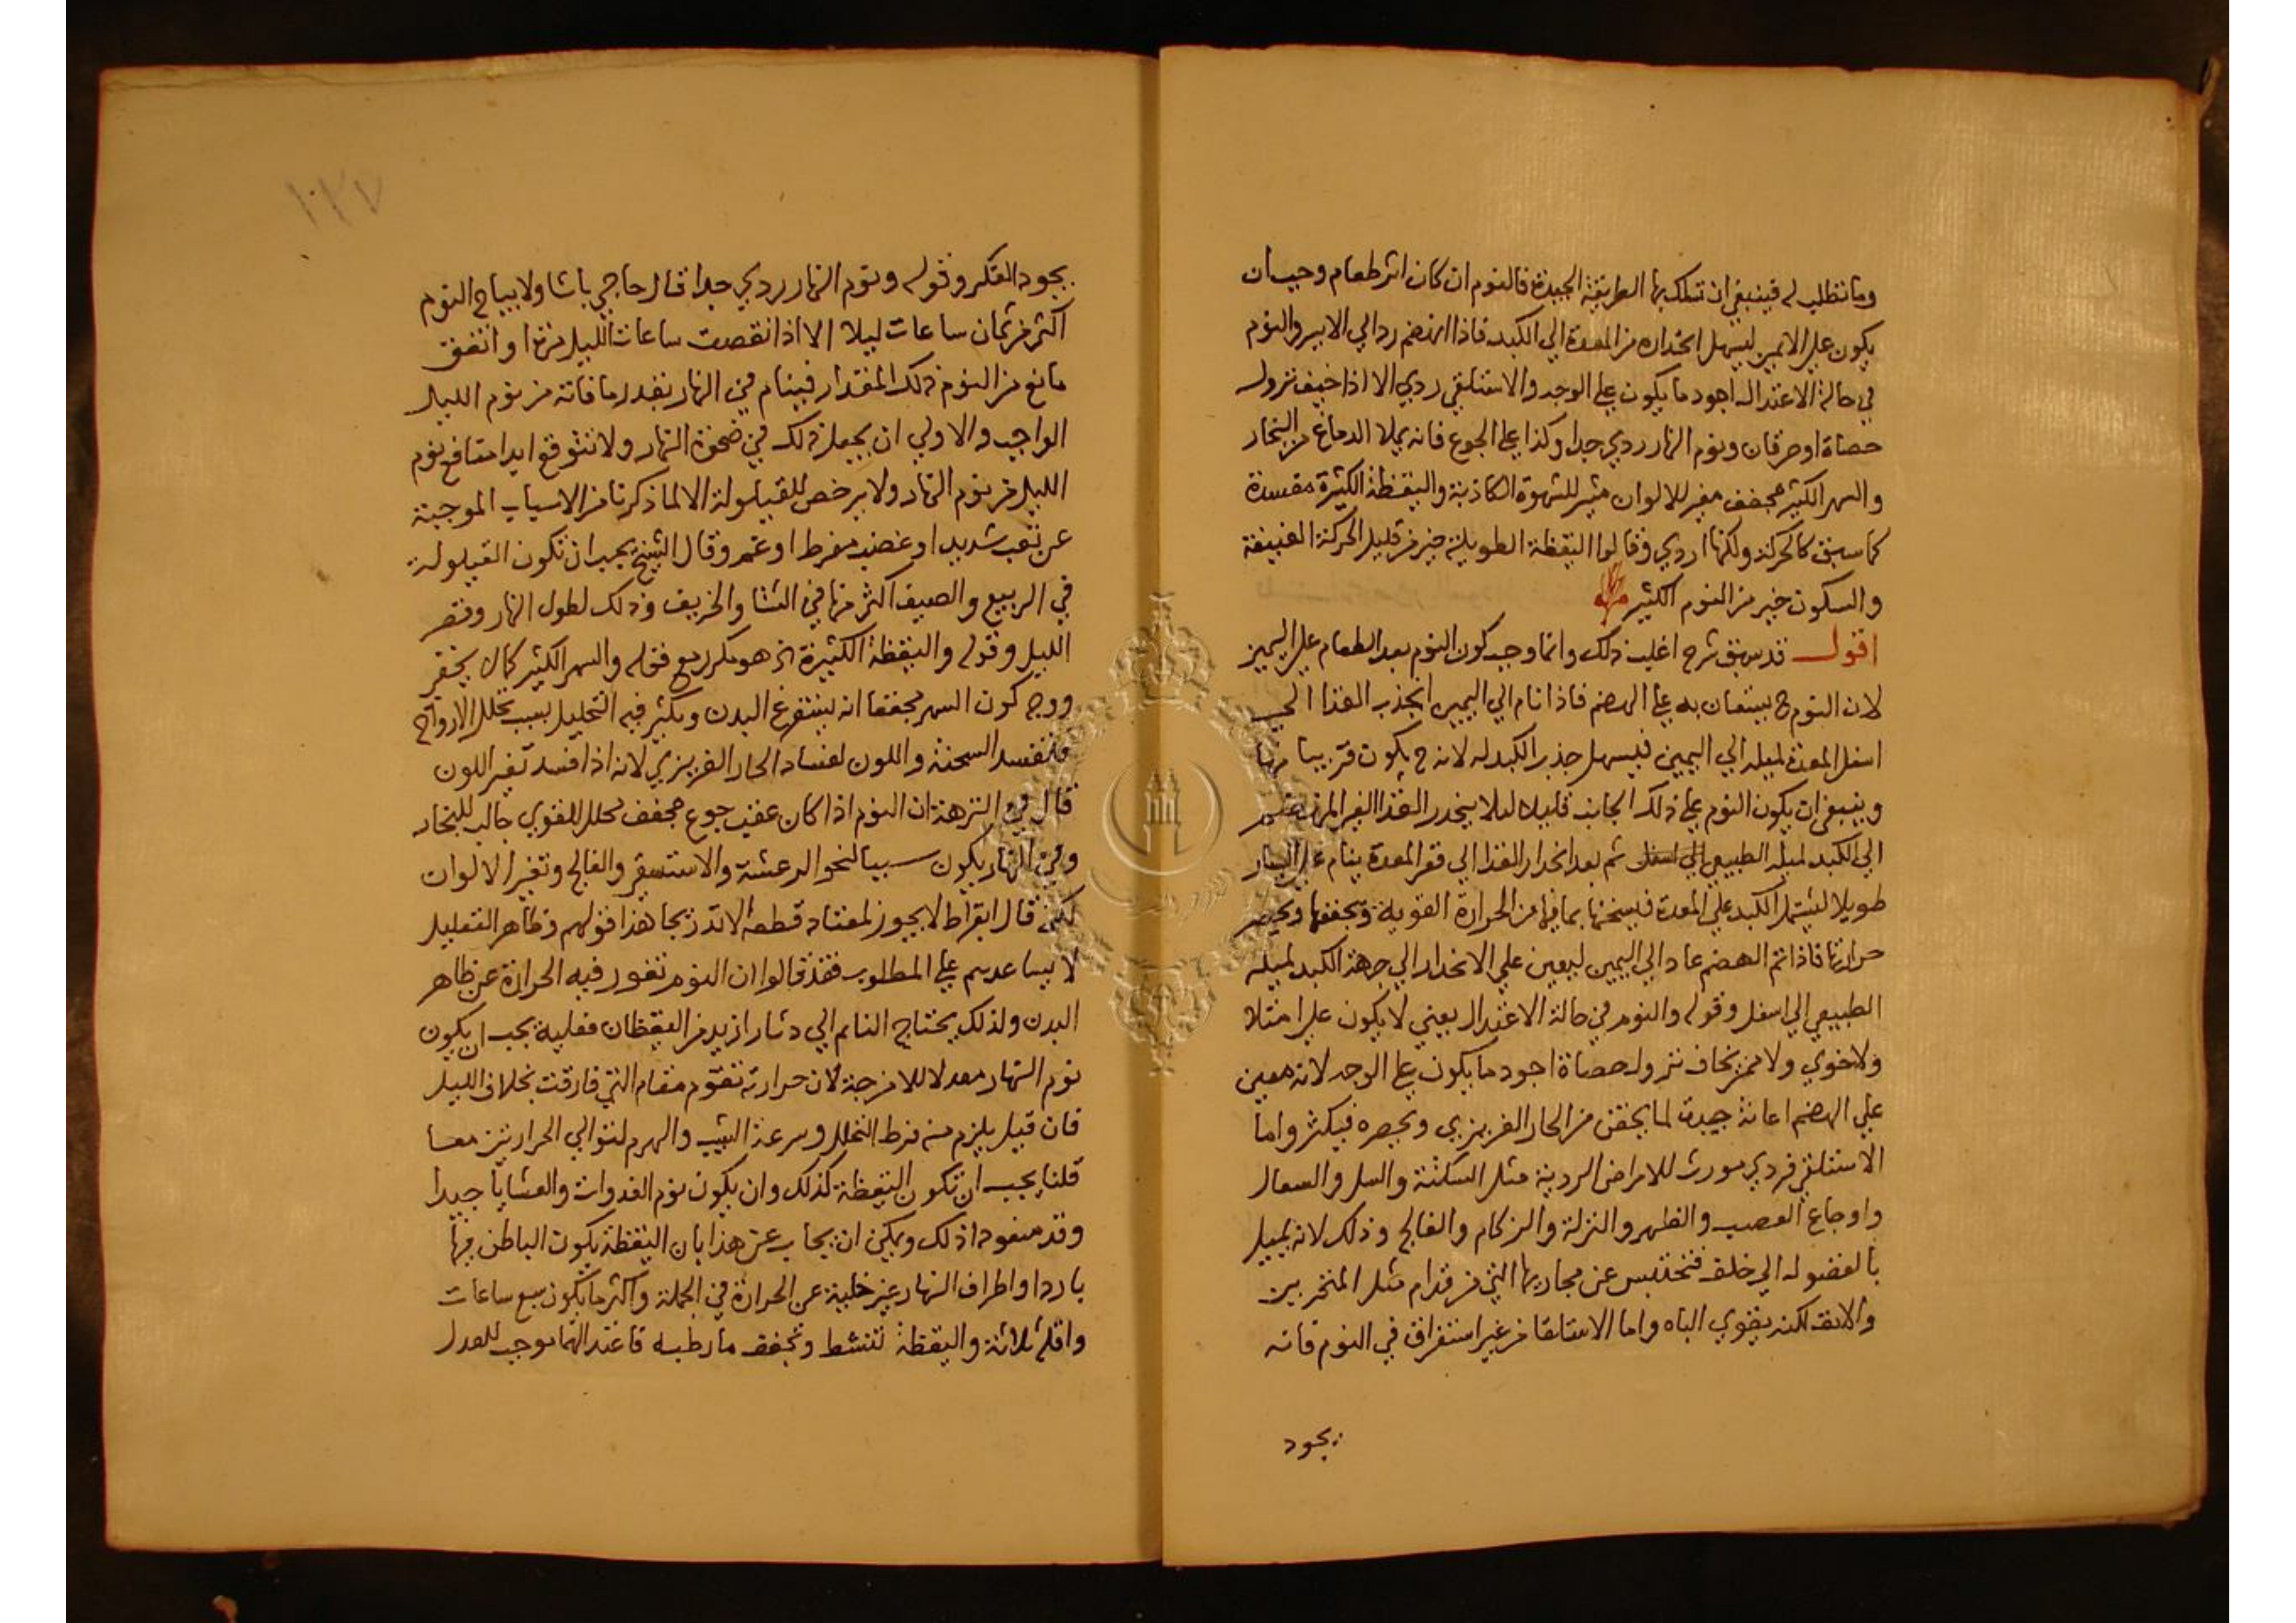 وما تطلب له فينبغي ان تسلك بها الطريقة الجيدة فالنوم ان كان اثر طعام وجب ان
يكون علي الايمن ليسهل انحداره من المعدة الي الكبد فاذا انهضم رد الي الايسر والنوم
في حالة الاعتدال اجود ما يكون علي الوجه والاستلقي ردي الا اذا خيف نزول
حصاة او حرقان ونوم النهار ردي جدا وكذا علي الجوع فانه يملا الدماغ من البخار
والسهر الكثير مجفف مغير للالوان مثير للشهوة الكاذبة واليقظة الكثيرة مفسدة
كما سبق كالحركة ولكنها اردي وقالوا اليقظة الطويلة خير من قليل الحركة العنيفة
والسكون خير من النوم الكثير
اقول قد سبق شرح اغلب ذلك وانما وجب كون النوم بعد الطعام علي اليمين
لان النوم ح يستعان به علي الهضم فاذا نام الي اليمين انجذب الغذا الي
اسفل المعدة لميله الي اليمين فيسهل جذب الكبد له لانه ح يكون قريبا منها
وينبغي ان يكون النوم علي ذلك الجانب قليلا ليلا ينحدر الغذا الغير المنهضم
الي الكبد لميله الطبيعي الي اسفل ثم بعد انحدار الغذا الي قعر المعدة ينام علي اليسار
طويلا ليشتمل الكبد علي المعدة فيسخنها بما فيها من الحرارة القوية ويحقنها ويحصر
حرارتها فاذا تم الهضم عاد الي اليمين ليعين علي الانحدار الي جهة الكبد لميله
الطبيعي الي اسفل وقوله والنوم في حالة الاعتدال يعني لا يكون علي امتلا
ولا خوي ولا ممن يخاف نزول حصاة اجود ما يكون علي الوجه لانه معين
علي الهضم اعانة جيدة لما يحقن من الحار الغريزي ويحصره فيكثر واما
الاستلقي فردي مورث للامراض الردية مثل السكتة والسل والسعال
واوجاع العصب والظهر والنزلة والزكام والفالج وذلك لانه يميل
بالفضول الي خلف فتحتبس عن مجاريها التي من قدام مثل المنخرين
والانف لكنه يقوي الباه واما الاستلقا من غير استغراق في النوم فانه
يجود
١٠٢٧
يجود الفكر وقوله ونوم النهار ردي جدا قال حاجي باشا ولا يباح النوم
اكثر من ثمان ساعات ليلا الا اذا نقصت ساعات الليل منها او اتفق
مانع من النوم ذلك المقدار فينام في النهار بقدر ما فاته من نوم الليل
الواجب والاولي ان يجعل ذلك في ضحوة النهار ولا تتوقع ابدا منافع نوم
الليل من نوم النهار ولا يرخص للقيلولة الا لما ذكرنا من الاسباب الموجبة
عن تعب شديد او غضب مفرط او غم وقال الشيخ يجب ان تكون القيلولة
في الربيع والصيف اكثر منها في الشتا والخريف وذلك لطول النهار وقصر
الليل وقوله واليقظة الكثيرة الخ هو مكرر مع قوله والسهر الكثير كما لا يخفي
ووجه كون السهر مجففا انه يستفرغ البدن ويكثر فيه التحليل بسبب تحلل الارواح
فتفسد السحنة واللون لفساد الحار الغريزي لانه اذا فسد تغير اللون
قال في النزهة ان النوم اذا كان عقيب جوع مجفف محلل للقوي جالب للبخار
وفي النهار يكون سببا لنحو الرعشة والاستسقي والفالج وتغير الالوان
لكن قال ابقراط لا يجوز لمعتاده قطعه الا تدريجا هذا قولهم وظاهر التعليل
لا يساعدهم علي المطلوب فقد قالوا ان النوم تغور فيه الحرارة عن ظاهر
البدن ولذلك يحتاج النايم الي دثار ازيد من اليقظان فعليه يجب ان يكون
نوم النهار معدلا للامزجة لان حرارته تقوم مقام التي فارقت بخلاف الليل
فان قيل يلزم منه فرط التحلل وسرعة الشيب والهرم لتوالي الحرارتين معا
قلنا يجب ان تكون اليقظة كذلك وان يكون نوم الغدوات والعشايا جيدا
وقد منعوه اذ ذلك ويمكن ان يجاب عن هذا بان اليقظة يكون الباطن فيها
باردا واطراف النهار غير خلية عن الحرارة في الجملة واكثر ما يكون سبع ساعات
واقله ثلاثة واليقظة تنشط وتجفف ما رطبه فاعتدالهما يوجب العدل